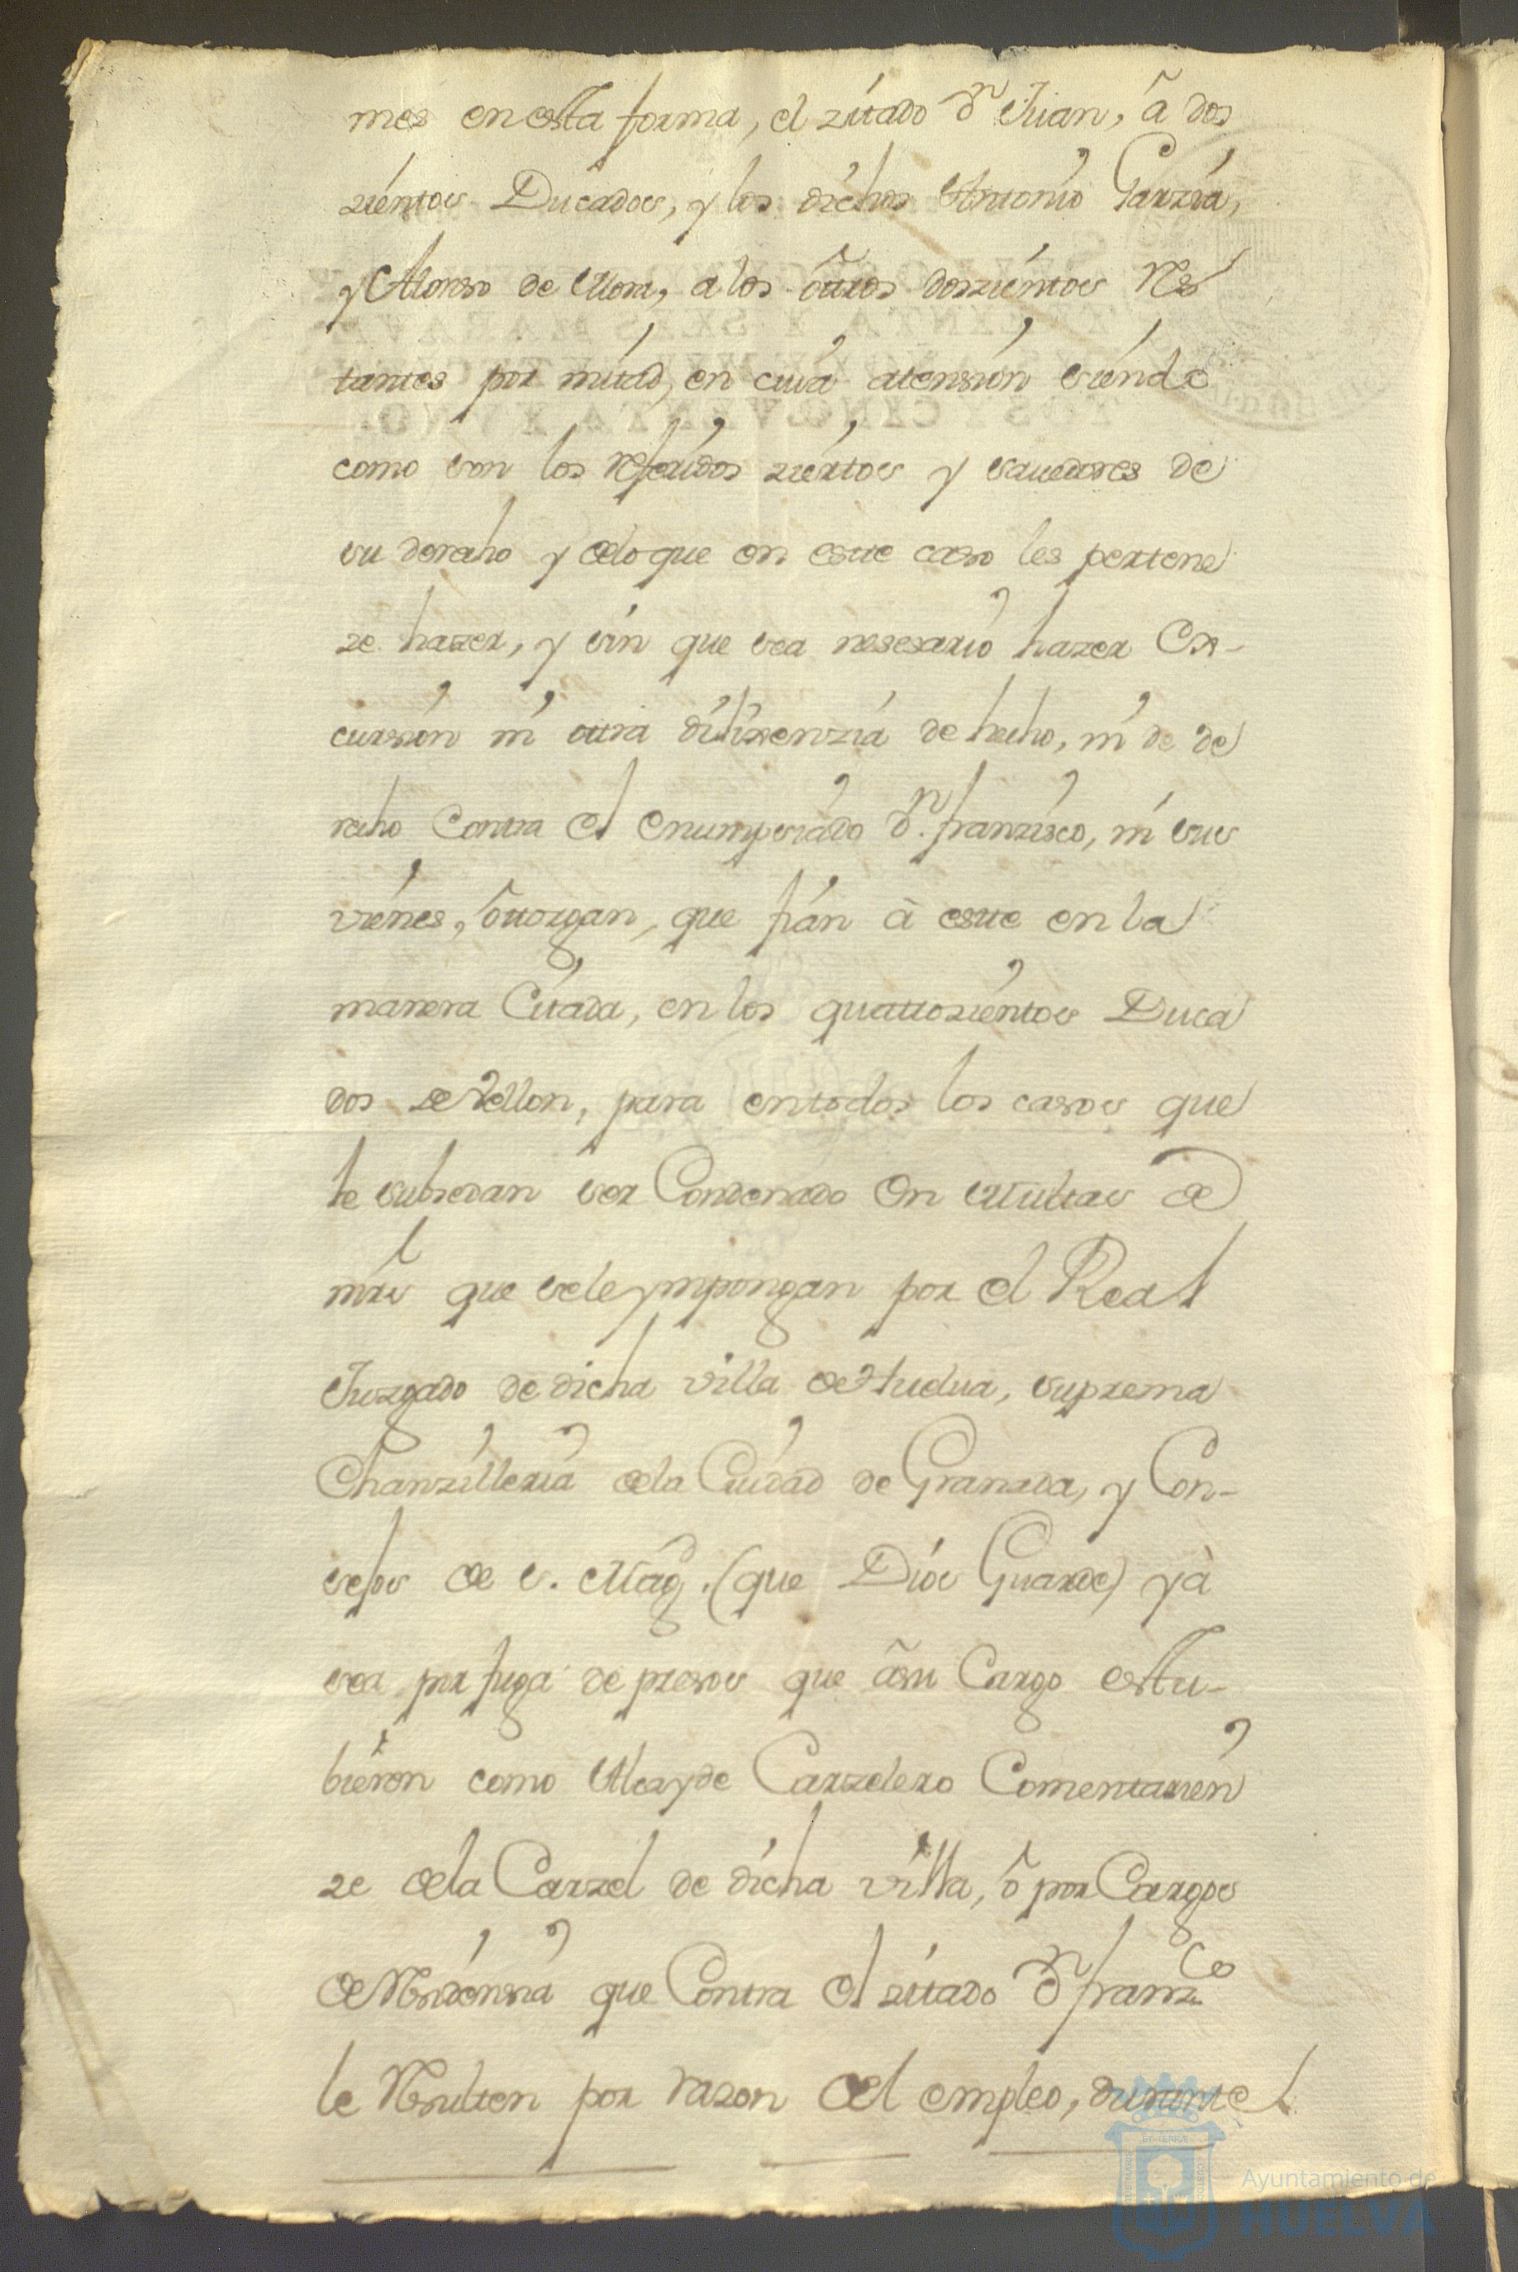 mes en esta forma, el zitado Dn. Juan, â dos
zientos Ducados, y los dichos Antonio Garzia,
y Alonso de Mora, a los ôtros doszientos Res
tantes por mitad, en cuia atension siende
como son los referidos ziertos y savedores de
su derecho y delo que en este caso les pertene
ze hazer, y sin que sea nesesario hazer Ex-
cursion ni otra dilixenzia de hecho, ni de de
recho Contra el enumpsiado Dn. franzisco, ni sus
vienes, ôtorgan, que fian à este en la
manera Citada, en los quattrozientos Duca
dos de Vellon, para en todos los casos que
le subsedan ser Condenado en Multas de
mrs que se le ympongan por el Real
Juzgado de dicha villa de Huelua, suprema
Chanzilleria dela Ciudad de Granada, y Con-
sejos de S. Magd. (que Dios Guarde) yà
sea por fuga de presos que âsu Cargo estu-
bieron como Alcayde Carzelero Comentarien
ze dela Carzel de dicha villa, ô por Cargos
de Residensia que Contra el zitado Dn franzco
le Resulten por razon del empleo, durante el
Ayuntamiento de
HUELVA